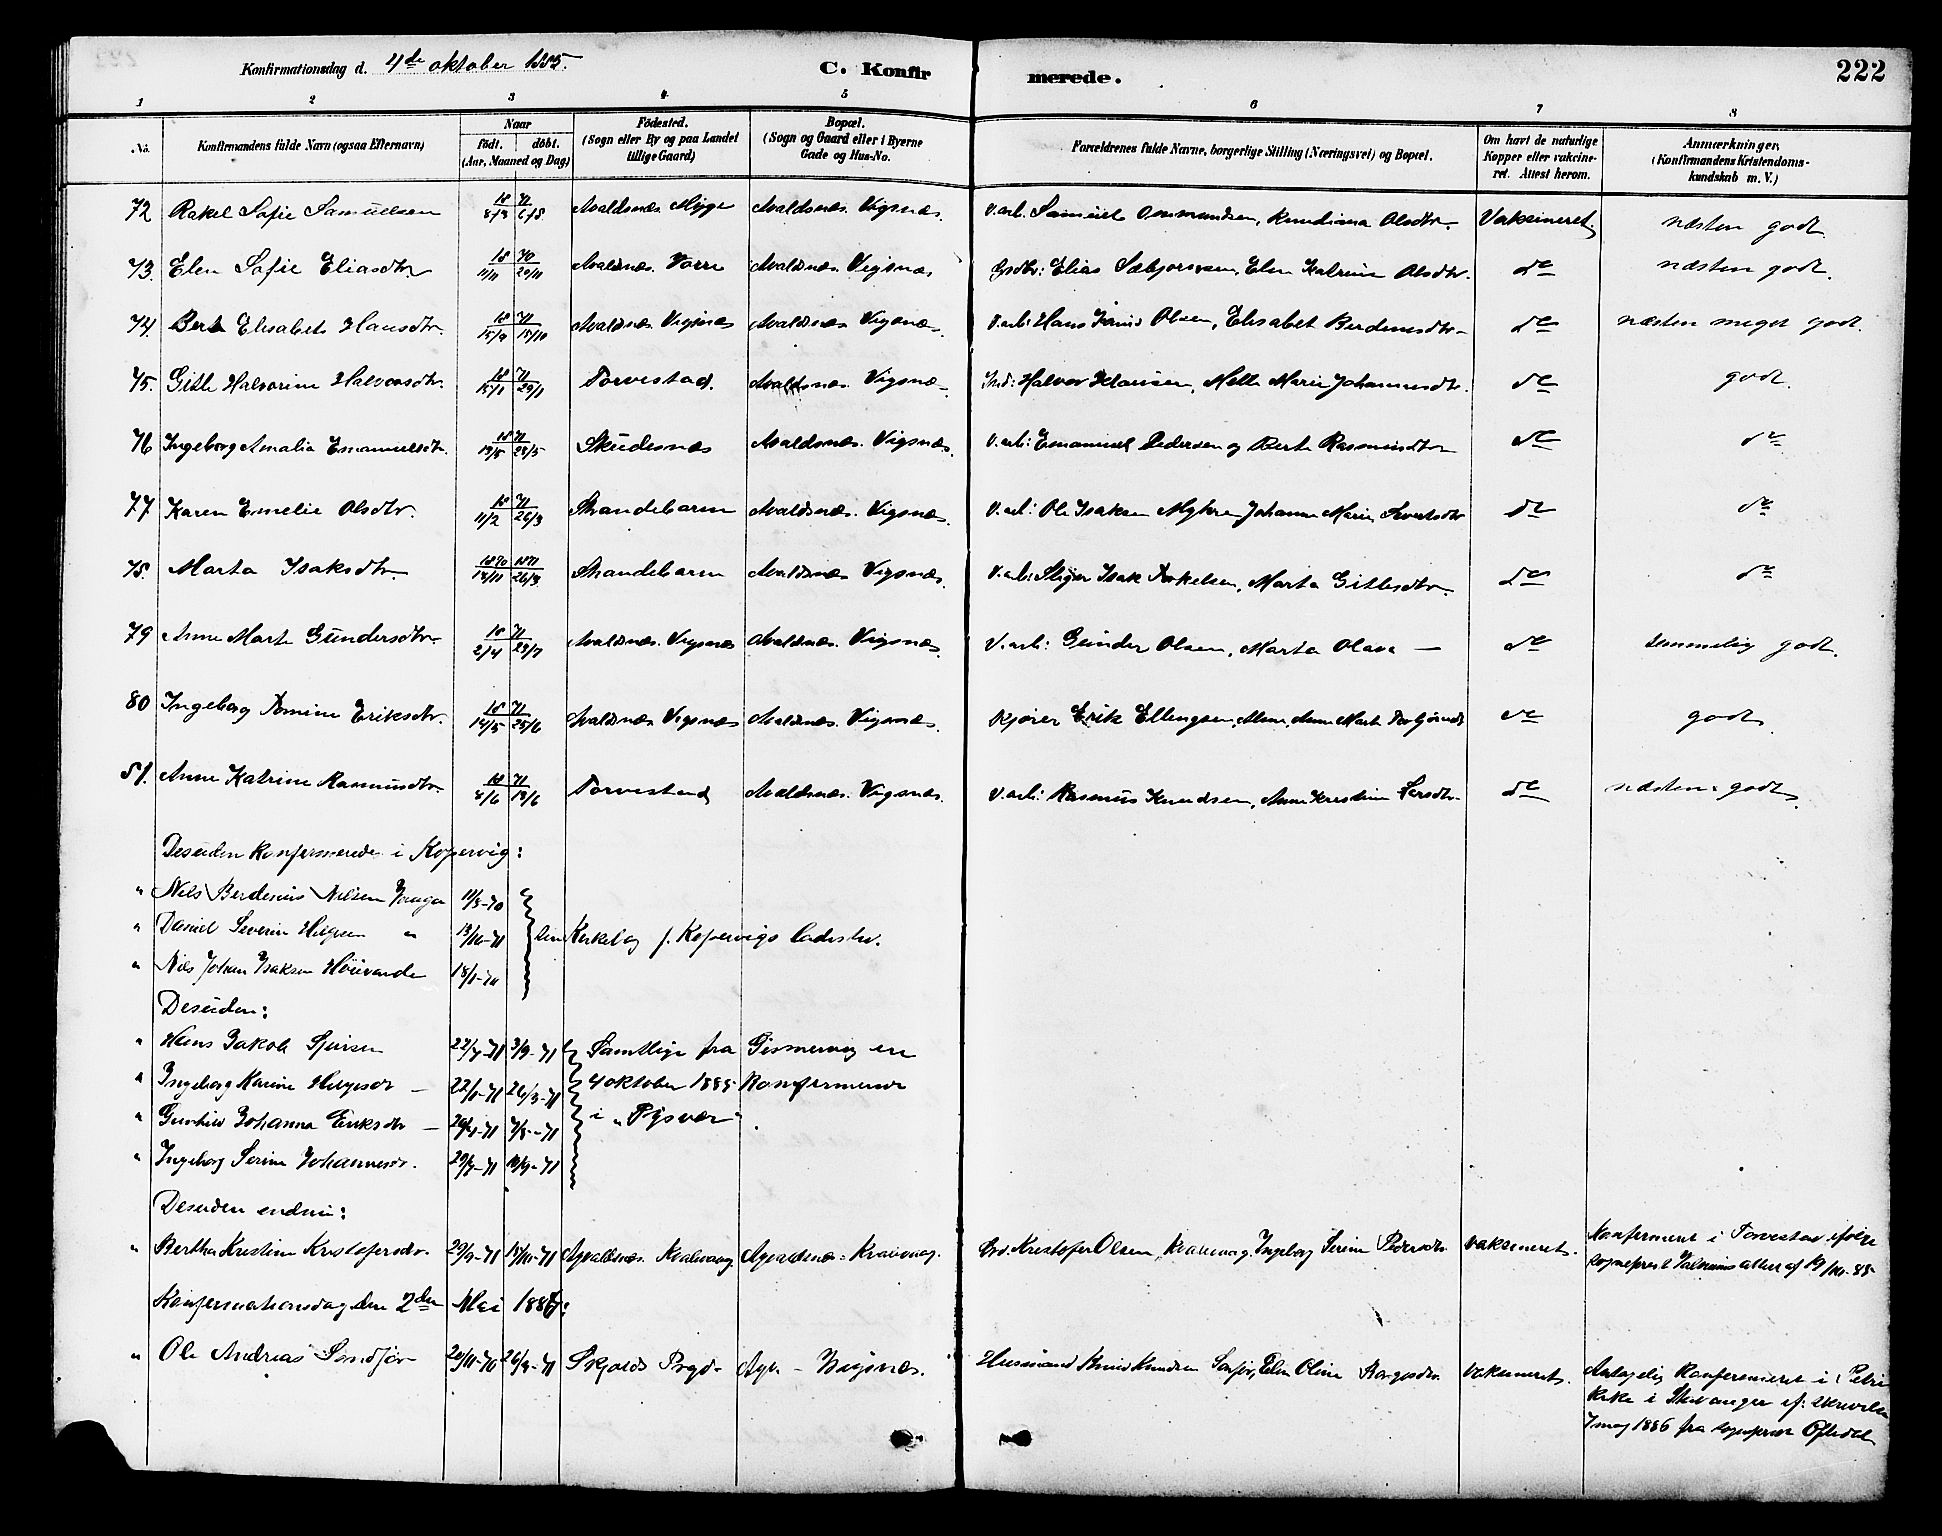 222
Konfirmationsdag d. 4de oktober 1885. C. Konfirmerede.
1 2 3 4 5 6 7 8
No. Konfirmandens fulde Navn (ogsaa Efternavn) Naar født. døbt. (Aar, Maaned og Dag) Fødested. (Sogn eller By og paa Landet tillige Gaard) Bopæl. (Sogn og Gaard eller i Byerne Gade og Hus-No. Forældrenes fulde Navne, borgerlige Stilling (Næringsvei) og Bopæl. Om havt de naturlige Kopper eller vakcineret. Attest herom. Anmærkninger. (Konfirmandens Kristendomskundskab m. V.)
72 Rakel Sofie Samuelsen 18 71 8/3 6/8 Avaldsnæs Myge Avaldsnæs. Vigsnæs. V. arb: Samuel Osmundsen, Knudiana Olsdtr. Vaksineret. næsten godt.
73. Elen Sofie Eliasdtr 18 70 11/11 20/11 Avaldsnæs. Vorre Avaldsnæs. Vigsnæs Elias Sæbjørnsen, Elen Katrine Olsdtr. do næsten godt.
74. Berta Elisabet Hansdtr. 18 71 15/9 15/10 Avaldsnæs Vigsnæs Avaldsnæs Vigsnæs. V. arb: Hans Olsen, Elisabet Berdinusdtr do næsten meget godt.
75. Gitle Halvorine Halvorsdtr. 18 71 15/1 29/1 Torvestad. Avaldsnæs. Vigsnæs. Halvor Klausen, Melle Marie Johannesdtr. do godt.
76 Ingeborg Amalia Emanuelsdtr. 18 71 19/5 28/5 Skudesnæs Avaldsnæs. Vigsnæs. V. arb: Emanuel Pedersen og Berte Rasmusdtr do do
77 Karen Emelie Olsdtr. 18 71 11/2 26/3 Strandebarm Avaldsnæs. Vigsnæs. V. arb: Ole Isaksen Myhre Johanne Marie Sivertsdtr do do
78. Marta Isaksdtr. 1870 1871 14/11 26/3 Strandebarm Avaldsnæs Vigsnæs. V. arb: Stiger Isak Torkelsen, Marta Gitlesdtr. do do
79 Anne Marte Gundersdtr. 18 71 2/4 23/7 Avaldsnæs. Vigsnæs Avaldsnæs. Vigsnæs V. arb: Gunder Olsen, Marta Olava — do temmelig godt.
80 Ingeborg Tomine Eriksdtr. 18 71 14/5 25/6 Avaldsnæs Vigsnæs Avaldsnæs. Vigsnæs. Kjører Erik Ellingsen, Anne Marte Torbjørnsdt do godt
81. Anne Katrine Rasmusdtr. 18 71 8/6 18/6 Torvestad Avaldsnæs. Vigsnæs. V. arb: Rasmus Knudsen, Anne Kristine Larsdtr. do næsten godt
Desuden konfirmerede i Kopervig:
" Nels Berdinus Nilsen 11/3-70
" Daniel Severin 13/10-71 Kirkebog f. Kopervigs ladested.
" Nils Johan Isaksen 18/1-70
Desuden:
" Hans Jakob Sjursen 22/7-71 3/9-71 Samtlige fra Gismervig ere
" Ingeborg Karine Helgesdtr — 22/1-71 26/3-71 4 oktober 1885 Konfirmerede
" Gunhild Johanna Eriksdtr — 7/5-71 i "Røvær".
" Ingeborg Serine Johannesdr. 29/7-71 10/9-71
Desuden endnu:
" Bertha Kristine Kristofersdr. 29/9-71 15/10-71 Agvaldsnæs. Kvalevaag Agvaldsnæs. Kvalevaag. Kristofer Olsen, Kvalevaag. Ingeborg Serine Pedersdtr. vaksineret. Konfirmeret i Torvestad ifølge sogneprest attest af 19/10-85
Konfirmationsdag den 2den Mai 1886:
" Ole Andreas 20/11-70 26/3-71 Skjolds Prgd. Agv. – Vigsnæs. Husmand Knud Knudsen Elen Oline vaksineret. Antagelig konfirmeret i Petri Kirke i Stavanger ef: skrivelse 7 maj 1886 fra sogneprest Oftedal